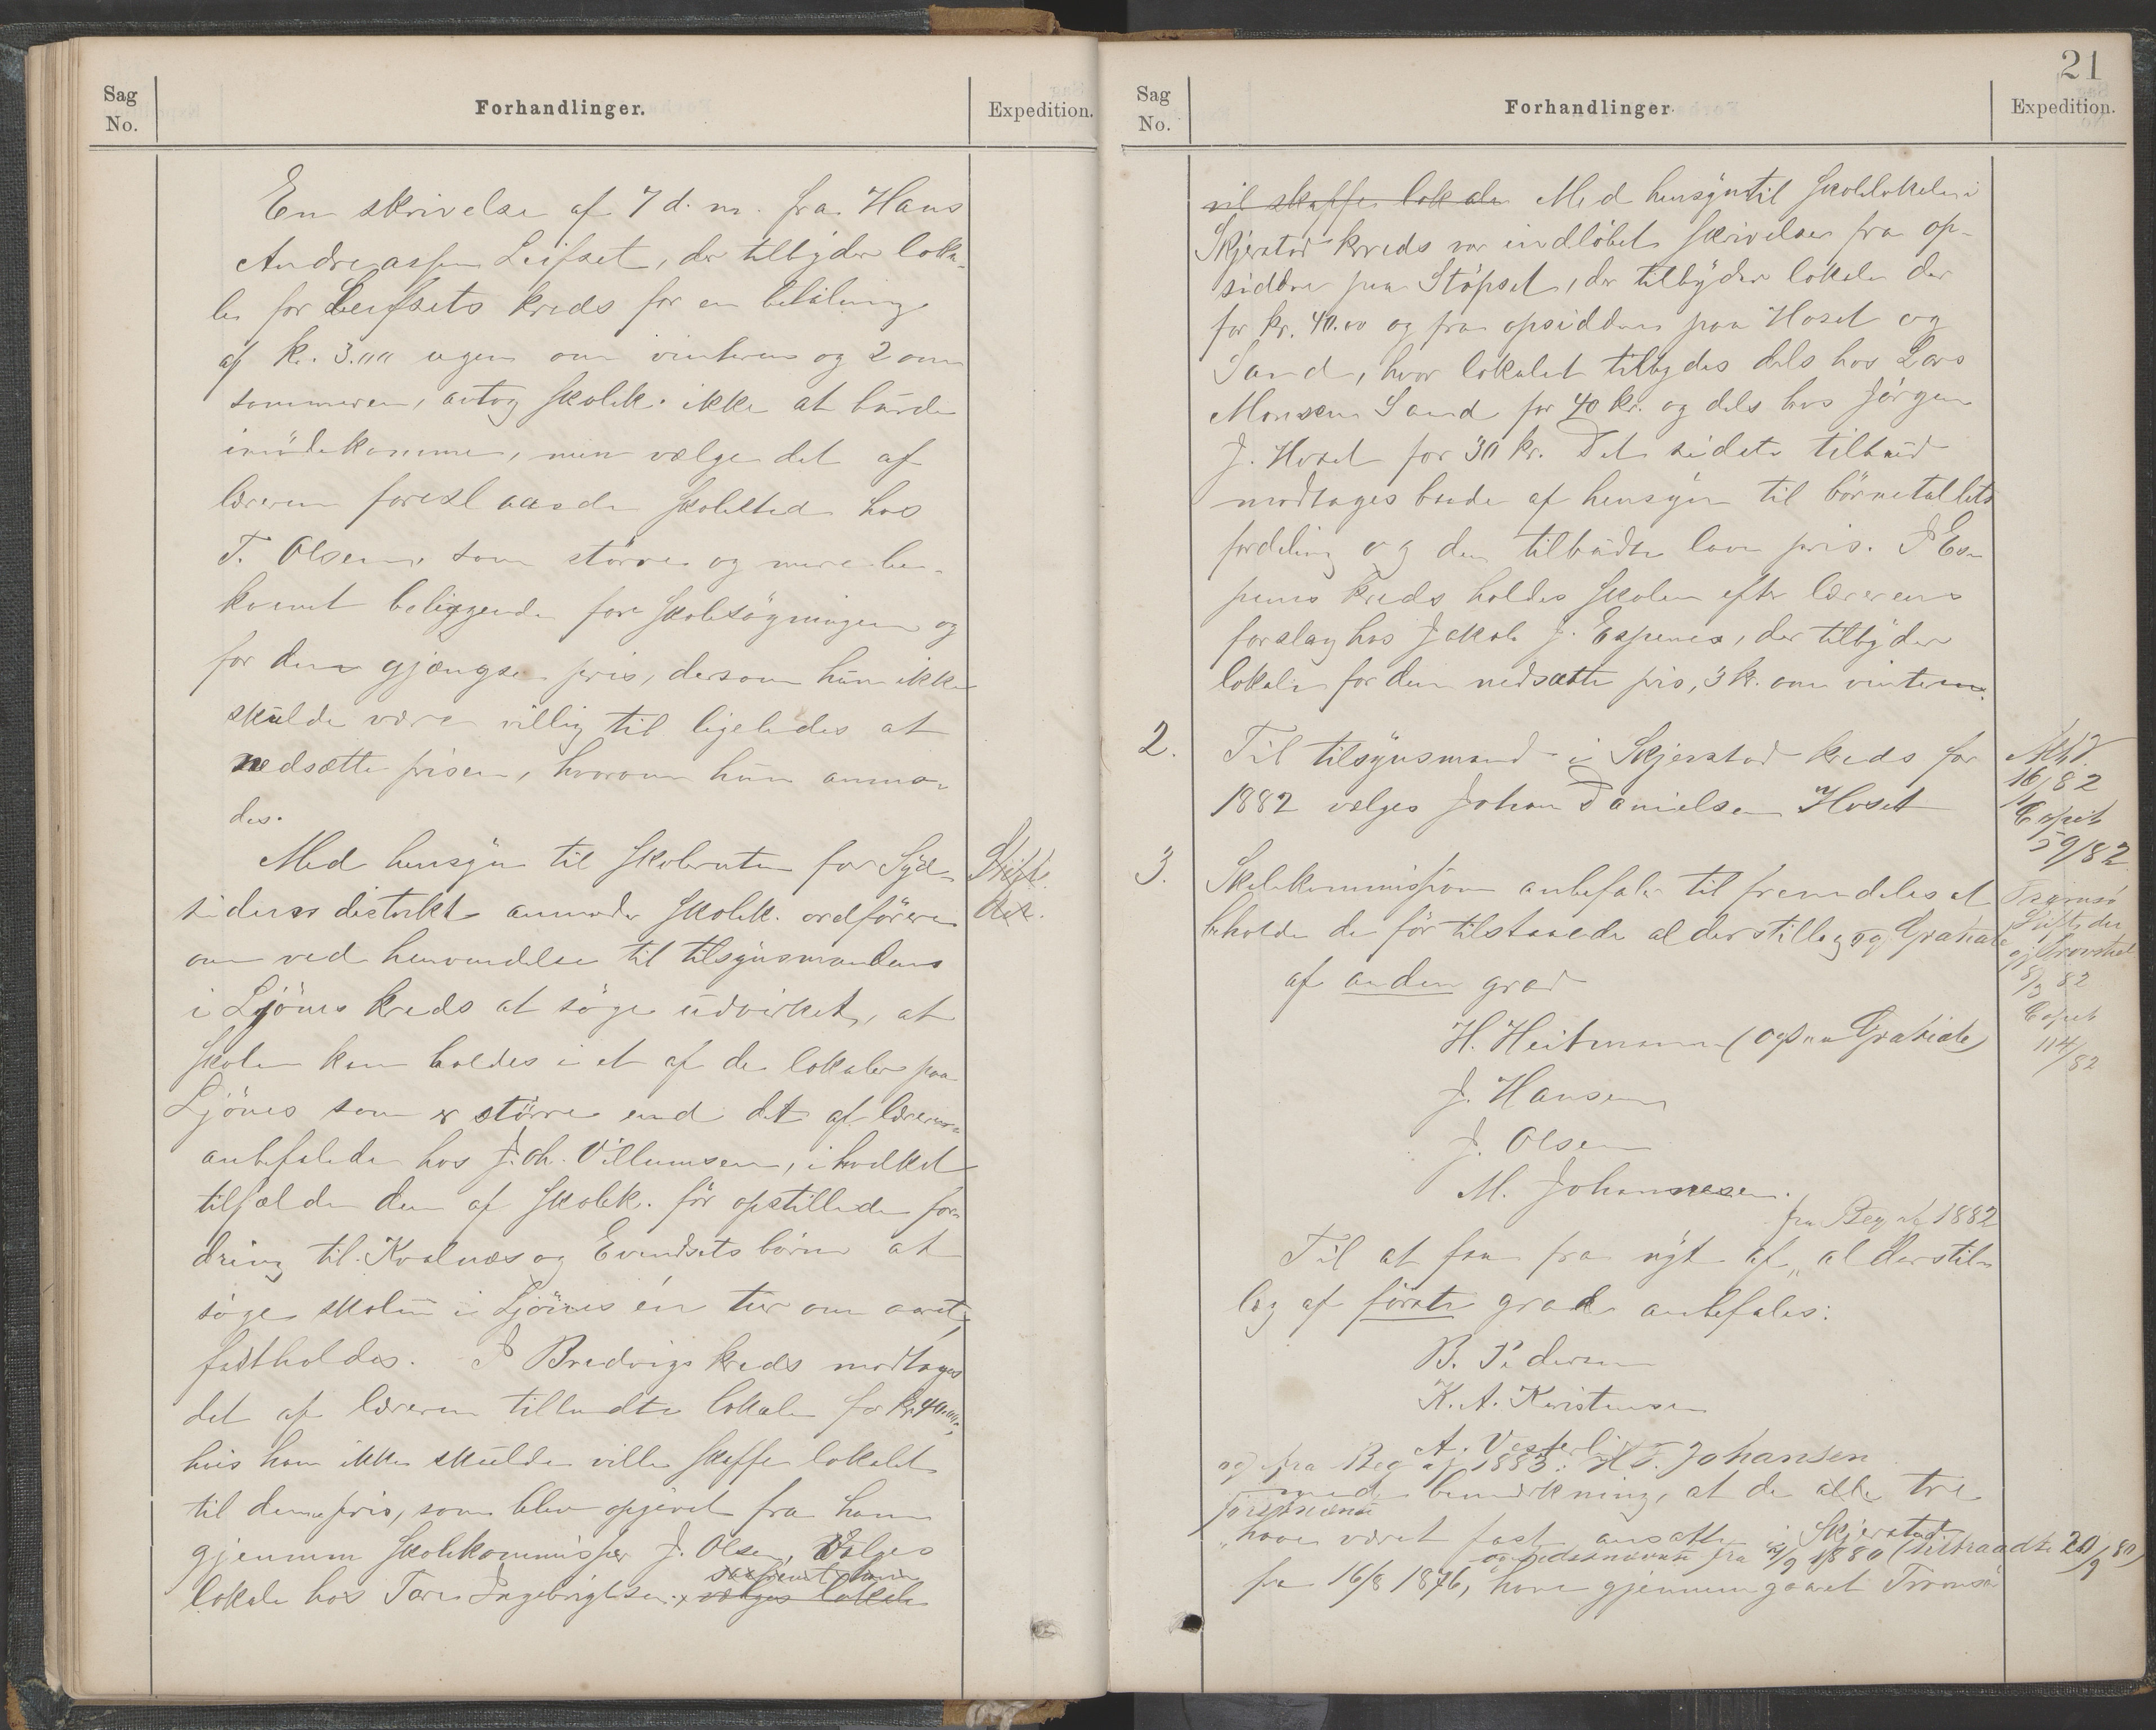 Sag
No.
Forhandlinger.
Expedition.
En skrivelse af 7 d. m. fra Hans
Andreassen Leifset, der tilbyder loka-
le for Leifsets kreds for en betaling
af kr. 3.00 ugen om vinteren og 2 om
sommeren, antog skolek. ikke at burde
imödekomme, men vælge det af
læreren foreslaaede skolested hos
T. Olsen, som större og mere be-
kvemt beliggende for skolesögningen og
for den gjængse pris, dersom hun ikke
skulde være villig til ligeledes at
nedsætte prisen, hvorom hun anmo-
des.
Med hensyn til skoleruten for Syd-
sidens distrikt anmoder skolek. ordföreren
om ved henvendelse til tilsynsmanden
i Ljönes kreds at söge udvirket, at
skolen kan holdes i et af de lokaler paa
Ljönes som er större end det af læreren
anbefalede hos Joh. Villumsen, i hvilket
tilfælde den af skolek. för opstillede for-
dring til Kvalnæs og Evendsets börn at
söge skolen i Ljönes én tur om aaret,
fastholdes. I Bredviks kreds modtages
det af læreren tilbudte lokale for kr. 40.00,
hvis han ikke skulde ville skaffe lokalet
til den pris, som blev opgivet fra ham
gjennem skolekommissær J. Olsen, vælges
lokale hos Tore Ingebrigtsen, vælges lokale
saafremt han
21
Sag
No.
Forhandlinger
Expedition.
vil skaffe lokale Med hensyn til skolelokale i
Skjerstad kreds var indlöbet skrivelser fra op-
siddere paa Stöpset, der tilbyder lokale der
for kr. 40.00 og fra opsiddere paa Hoset og
Sand, hvor lokalet tilbydes dels hos Lars
Monsen Sand for 40 kr. og dels hos Jörgen
J. Hoset for 30 kr. Det sidste tilbud
modtages baade af hensyn til börnetallets
fordeling og den tilbudte lave pris. I Es-
penes kreds holdes skolen efter lærerens
forslag hos Jakob J. Espenes, der tilbyder
lokale for den nedsatte pris, 3 kr. om vinteren.
2.
Til tilsynsmand i Skjerstad kreds for
1882 vælges Johan Danielsen Hoset
16/82
Exped
5 9/82
3.
Skolekommissionen anbefaler til fremdeles at
beholde de för tilstaaede alderstillæg og Gratiale
af anden grad
Tromsö
Stifts dir
gj. Provstiet
8/3 82
Exped
11 4/82
H. Heitmann (ogsaa Gratiale)
J. Hansen
J. Olsen
M. Johannesen.
fra Beg. af 1882
Til at faa fra nyt af, alderstil-
læg af förste grad anbefales:
B. Pedersen
K. A. Kristensen
A. Vesterli
og fra Beg af 1883: H T. Johansen
med bemærkning, at de alle tre
förstnævnte
have været fast ansatte i Skjerstad
og sidstnævnte fra 1880 (tiltraadte 20/9 80)
fra 16/8 1876, have gjennemgaaet Tromsö